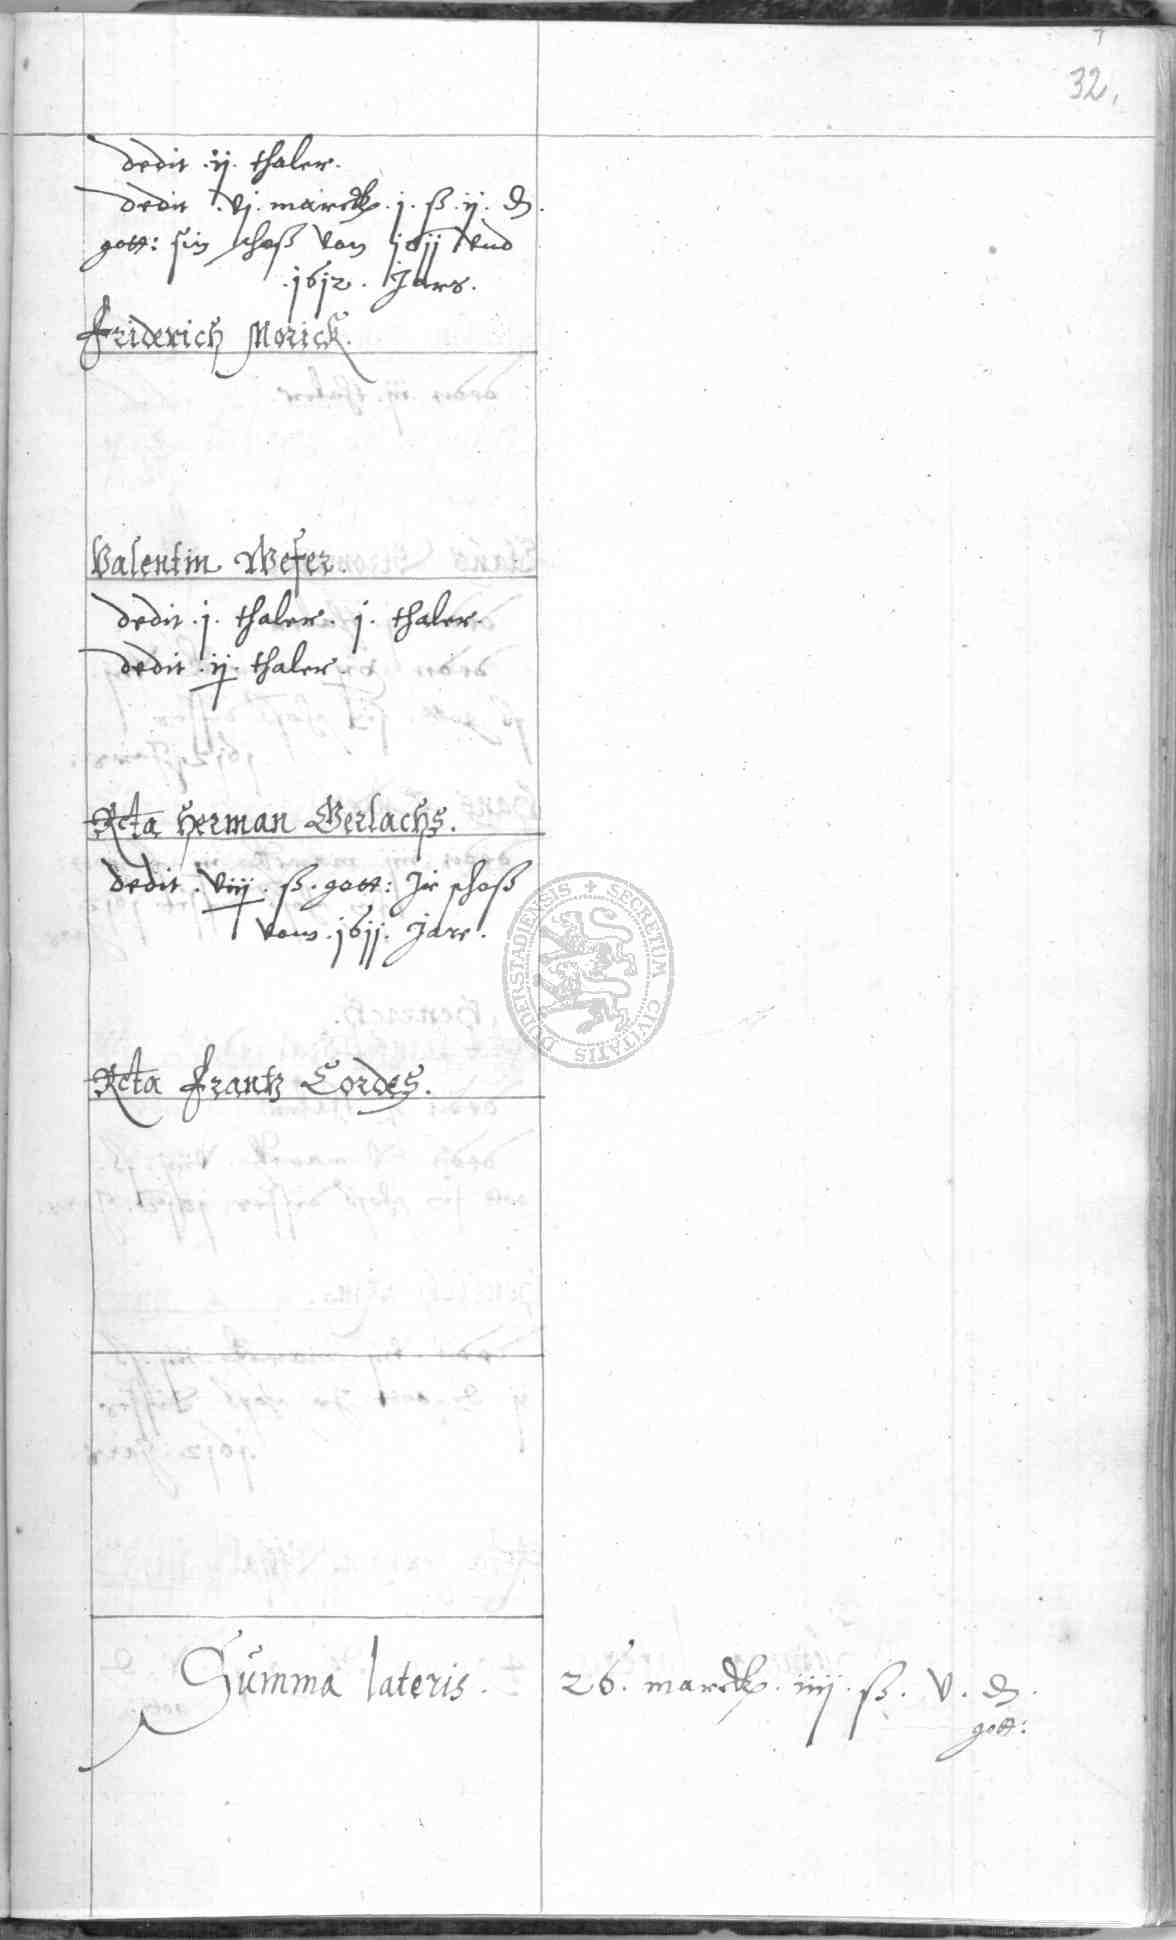 32.
dedit .ij. thaler.
dedit .vj. marck .j. ß .ij. ₰.
gott: sin schoß von 1611 vnd
.1612. Jars.
Friderich Morick.
Valentin Wefer.
dedit .j. thaler. j. thaler.
dedit .ij. thaler.
Rcta Herman Gerlachs.
dedit .viij. ß. gott: Jr schoß
vom .1611. Jare.
SECRETUM CIVITATIS DUDERSTADIENSIS
Rcta Frantz Cordes.
Summa lateris. 26. marck. iiij. ß. v. ₰.
gott: